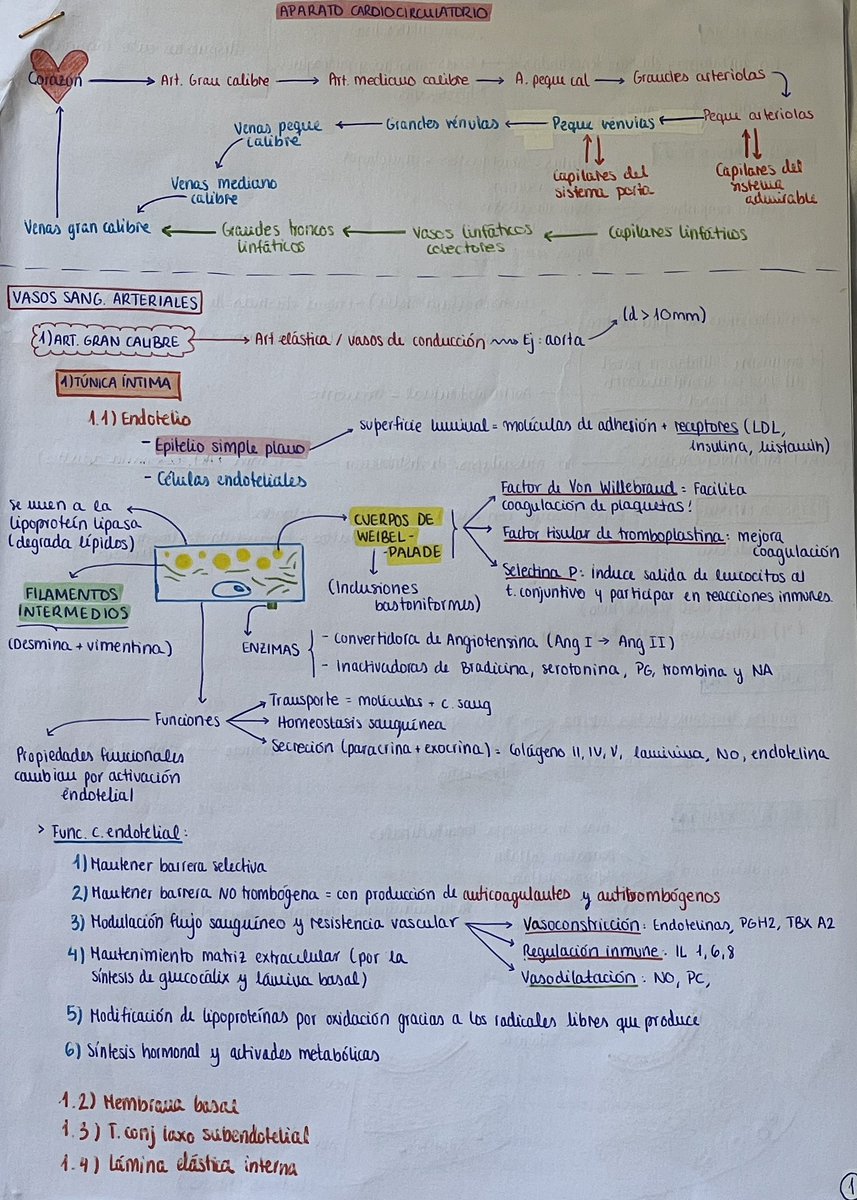 APARATO CARDIOCIRCULATORIO
Corazón → Art. Gran calibre → Art. mediano calibre → A. peque cal → Grandes arteriolas
Peque arteriolas
Peque vénulas
Grandes vénulas
Venas peque
calibre
Venas mediano
calibre
Capilares del
sistema porta
Capilares del
sistema
admirable
Venas gran calibre ← Grandes troncos
linfáticos
Vasos linfáticos
colectores
Capilares linfáticos
VASOS SANG. ARTERIALES
1) ART. GRAN CALIBRE → Art elástica / vasos de conducción Ej: aorta
(d > 10mm)
1) TÚNICA ÍNTIMA
1.1) Endotelio
- Epitelio simple plano
superficie luminal = moléculas de adhesión + receptores (LDL,
insulina, histamin)
- Células endoteliales
se unen a la
lipoproteín lipasa
(degrada lípidos)
CUERPOS DE
WEIBEL-
-PALADE
(Inclusiones
bastoniformes)
Factor de Von Willebraud = Facilita
coagulación de plaquetas!
Factor tisular de tromboplastina: mejora
coagulación
Selectina P: induce salida de leucocitos al
t. conjuntivo y participar en reacciones inmunes
FILAMENTOS
INTERMEDIOS
(Desmina + vimentina)
ENZIMAS
- Convertidora de Angiotensina (Ang I → Ang II)
- Inactivadoras de Bradicina, serotonina, PG, trombina y NA
Funciones
Transporte = moléculas + c. sang
Homeostasis sanguínea
Secreción (paracrina + exocrina) = Colágeno II, IV, V, laminina, NO, endotelina
Propiedades funcionales
cambian por activación
endotelial
> Func. c. endotelial:
1) Mantener barrera selectiva
2) Mantener barrera NO trombógena = con producción de anticoagulantes y antitrombógenos
3) Modulación flujo sanguíneo y resistencia vascular
Vasoconstricción: Endotelinas, PGH2, TBX A2
Regulación inmune: IL 1,6,8
Vasodilatación: NO, PC,
4) Mantenimiento matriz extracelular (por la
síntesis de glucocálix y lámina basal)
5) Modificación de lipoproteínas por oxidación gracias a los radicales libres que produce
6) Síntesis hormonal y activades metabólicas
1.2) Membrana basal
1.3) T. conj laxo subendotelial
1.4) Lámina elástica interna
1